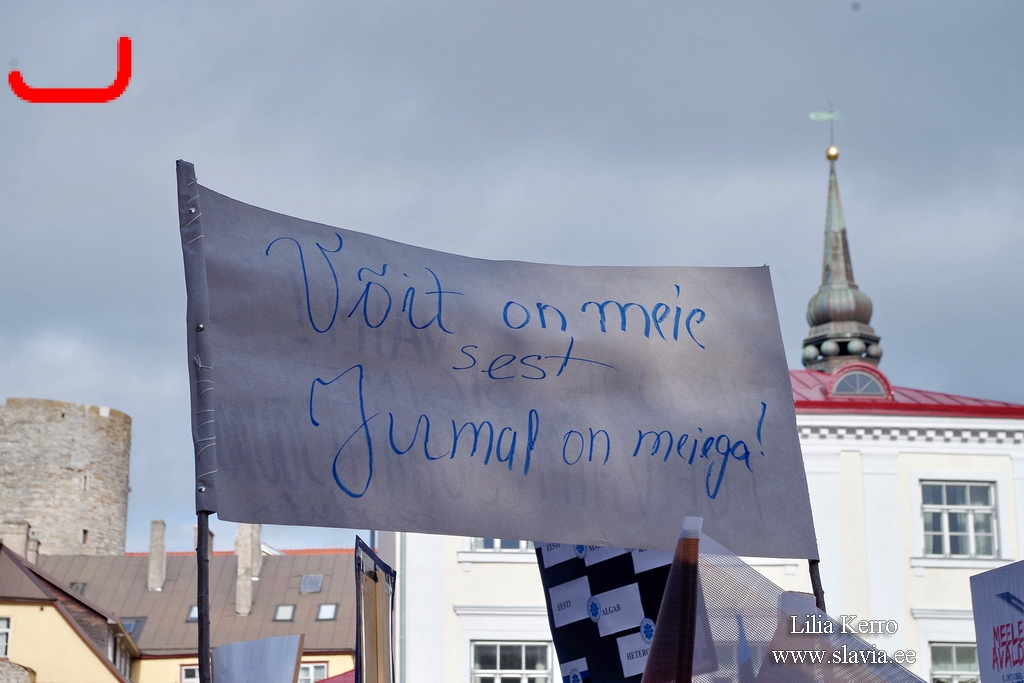 Võit on meie
sest
Jumal on meiega!
EESTI
EESTI
ALGAB
HETERO
MEELE
AVALD
Lilia Kerro
www.slavia.ee